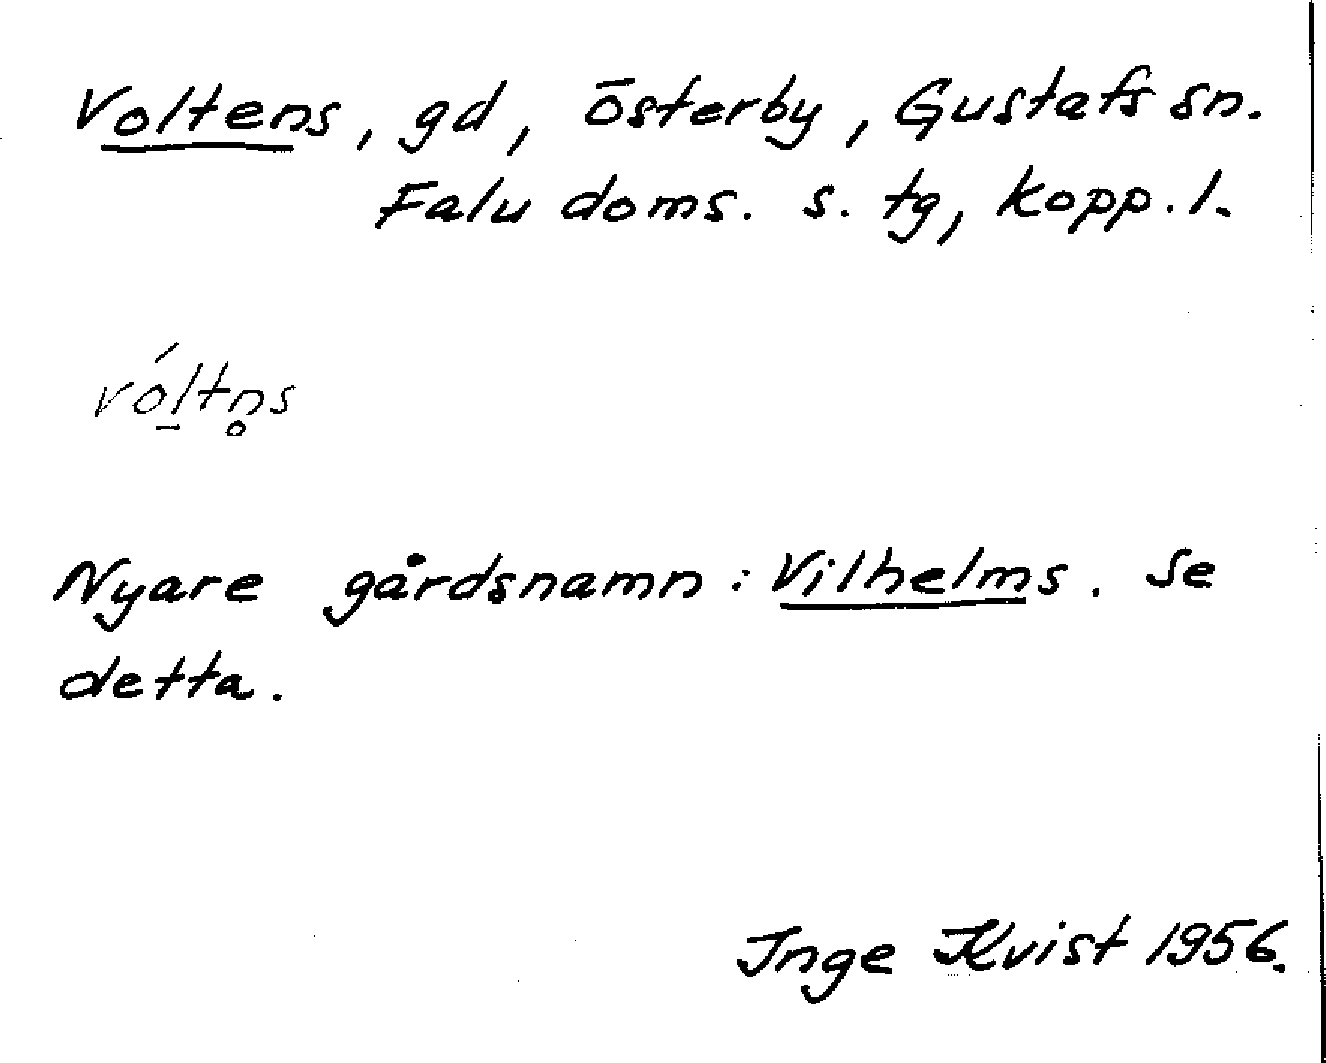 Voltens, gd, Österby, Gustafs sn.
Falu doms. s. tg, Kopp. l.
vól̲tn̥s
Nyare gårdsnamn: Vilhelms. Se
detta.
Inge Kvist 1956.